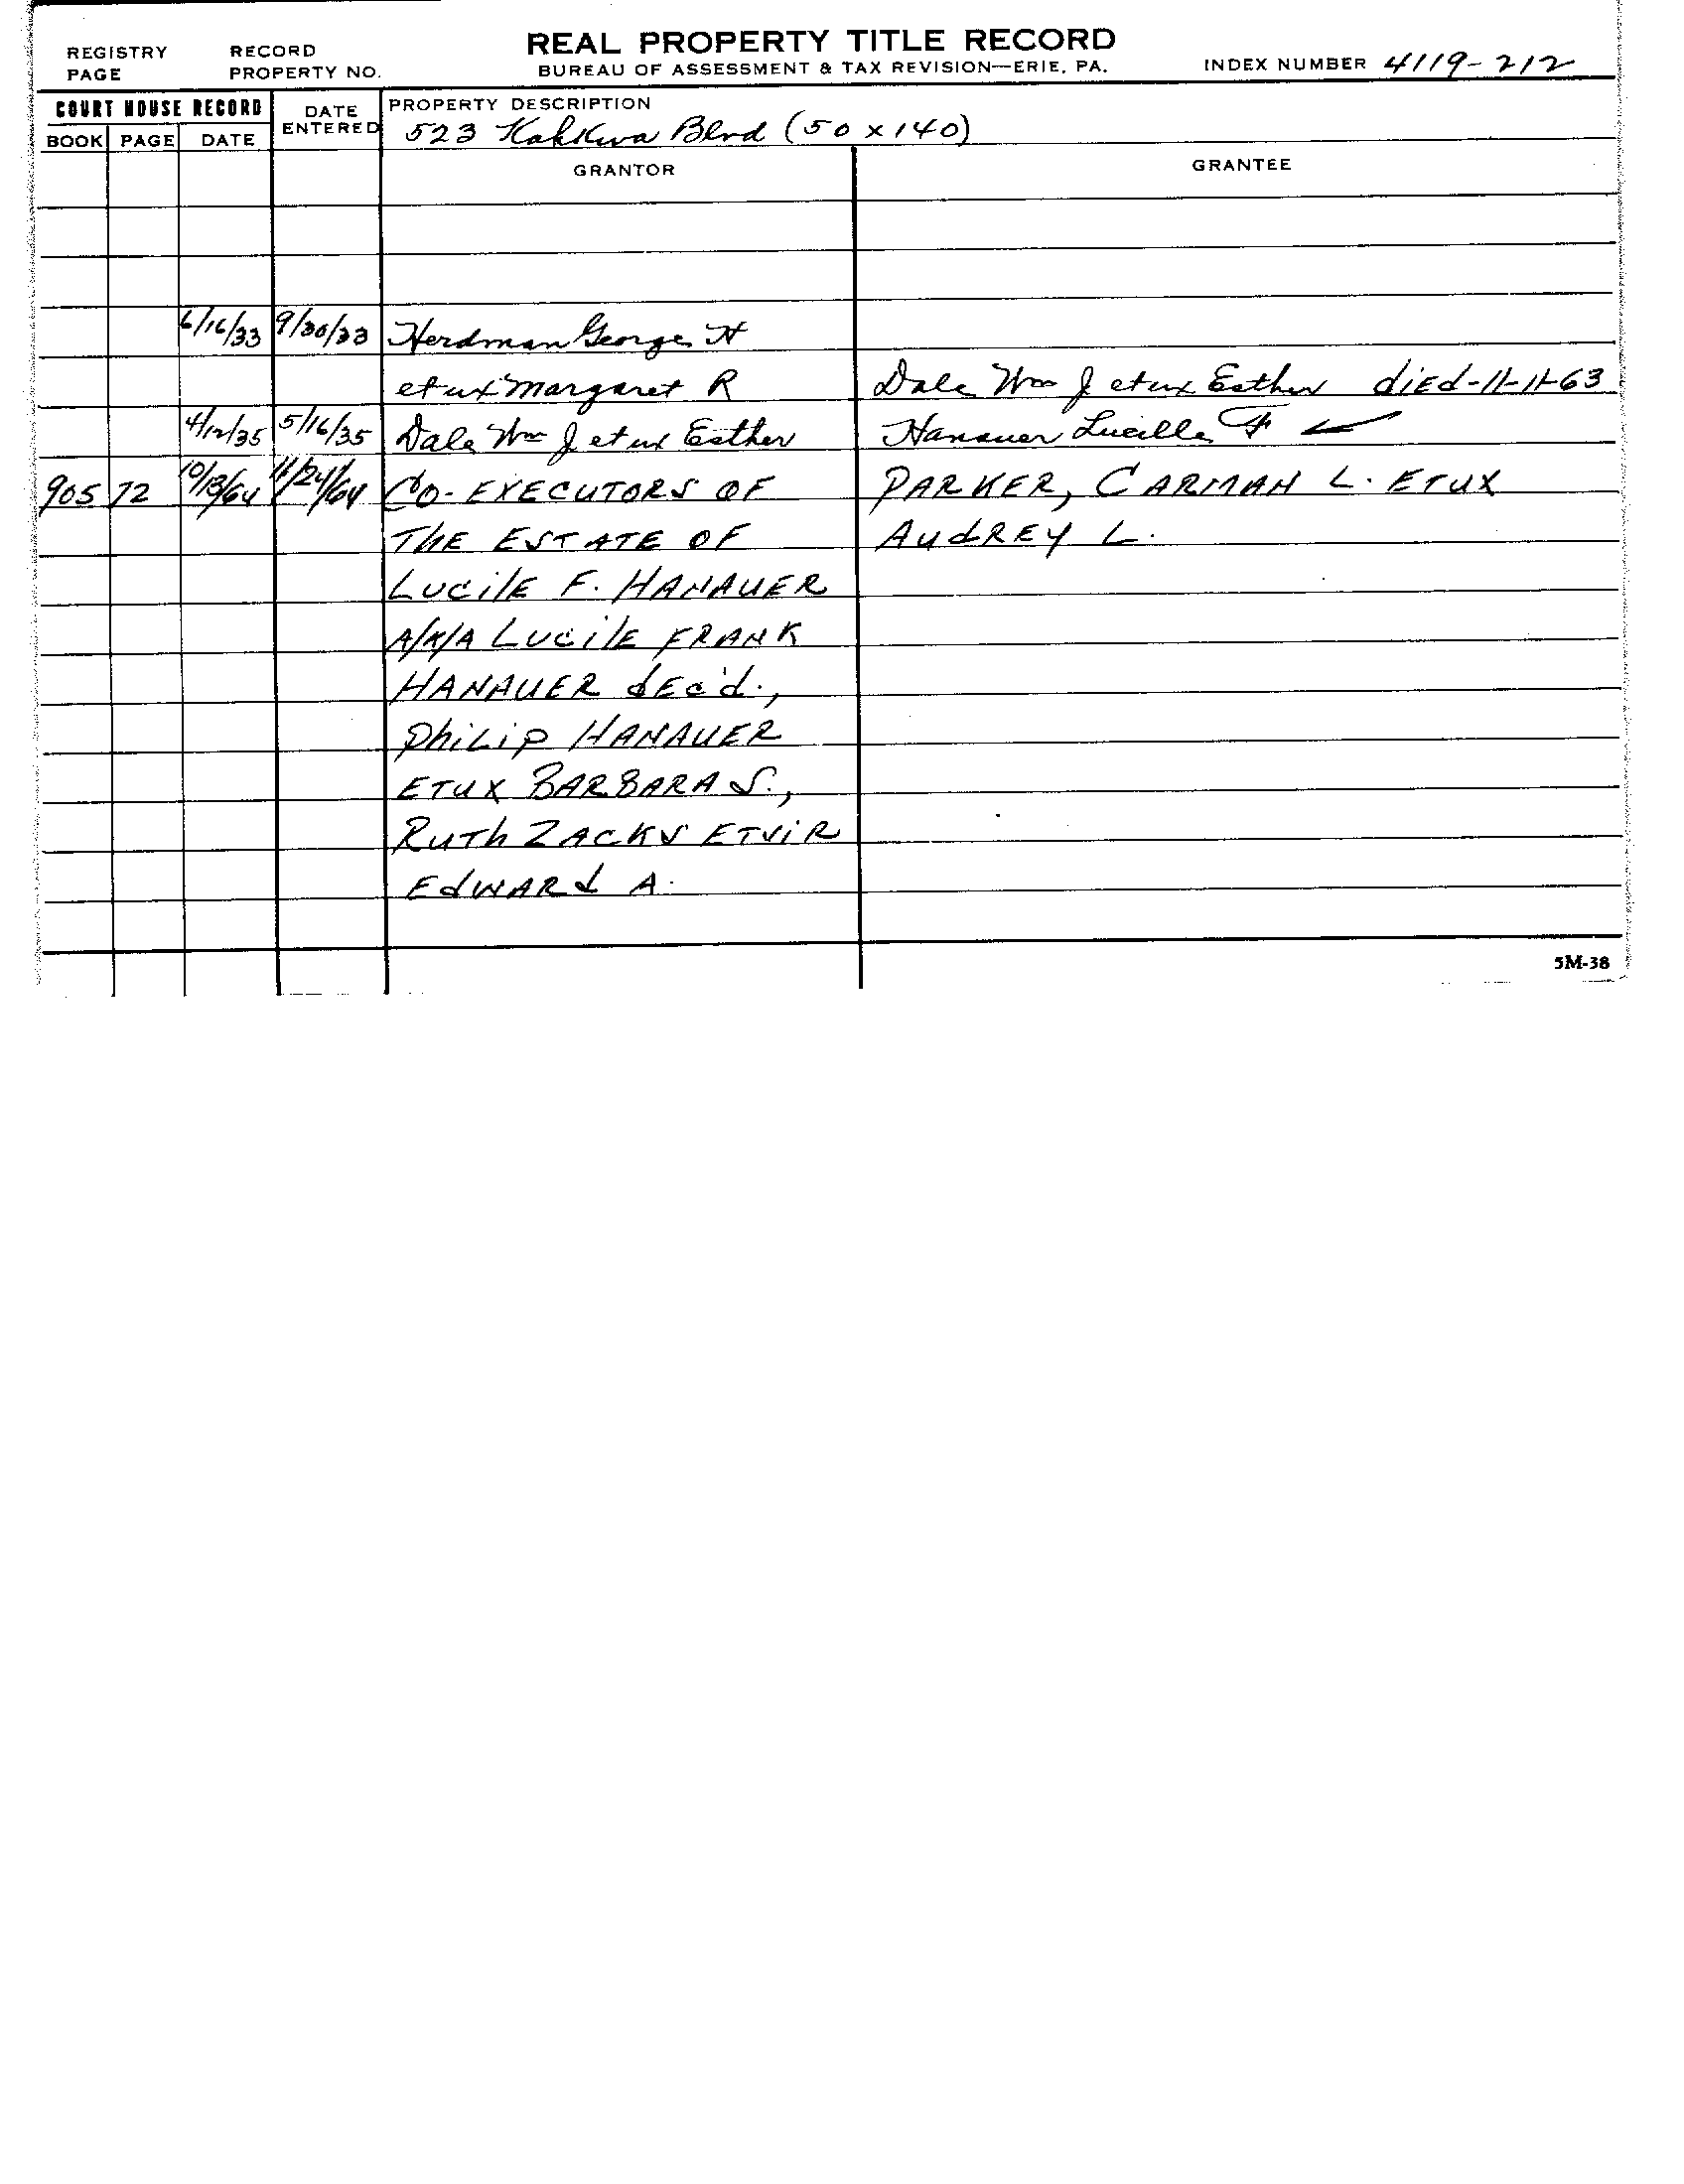 REAL PROPERTY TITLE RECORD
REGISTRY PAGE RECORD PROPERTY NO. BUREAU OF ASSESSMENT & TAX REVISION—ERIE, PA. INDEX NUMBER 4119-212
COURT HOUSE RECORD DATE ENTERED PROPERTY DESCRIPTION
BOOK PAGE DATE 523 Kahkwa Blvd (50 x 140)
GRANTOR GRANTEE
6/16/33 9/30/33 Herdman George H
et ux Margaret R Dale Wm J et ux Esther diEd-11-11-63
4/12/35 5/16/35 Dale Wm J et ux Esther Hanauer Lucille F
905 72 10/13/64 11/24/64 CO-EXECUTORS OF PARKER, CARMAN L. ETUX
THE ESTATE OF AUdREY L.
LUCilE F. HANAUER
A/K/A LUCilE FRANK
HANAUER dEc'd.,
PhiLip HANAUER
ETUX BARBARA S.,
RUTh ZACKS ETViR
EdWARd A.
5M-38